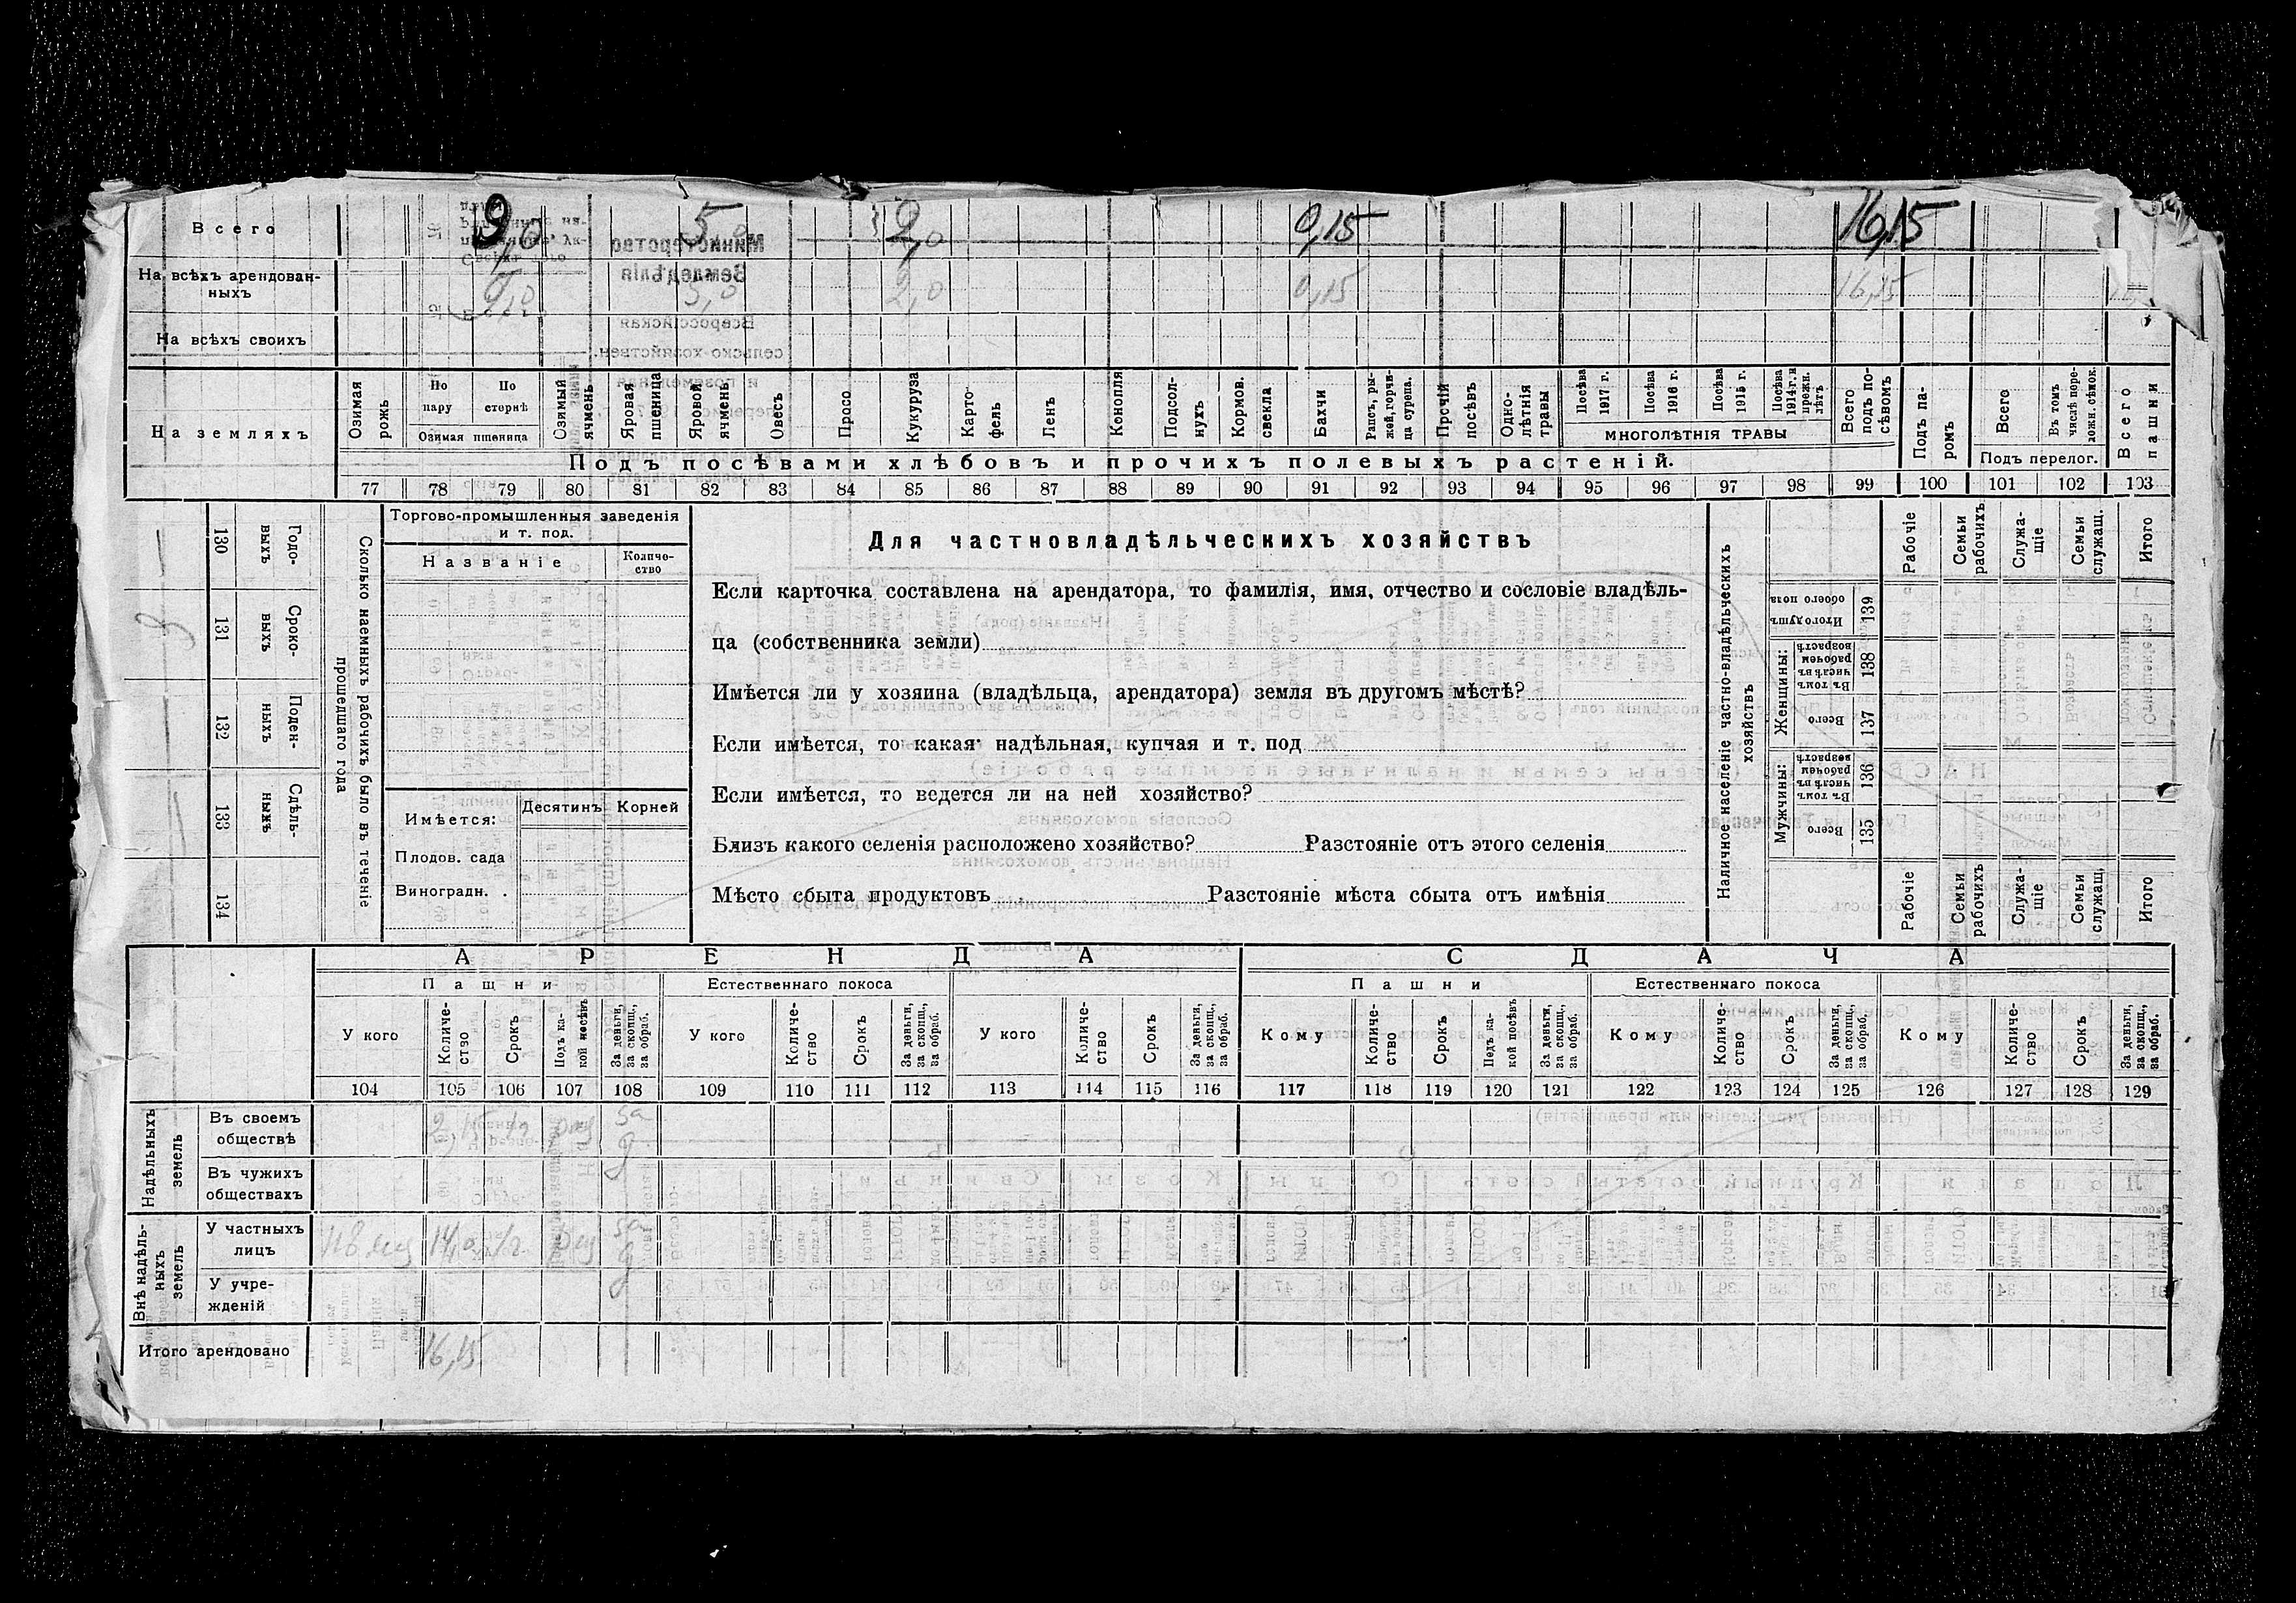 Всего 9,0 5,0 2,0 0,15 16,15
На всѣхъ арендован-
ныхъ 9,0 5,0 2,0 0,15 16,15
На всѣхъ своихъ
На земляхъ
Озимая рожь
По пару
По стернѣ
Озимая пшеница
Озимый ячмень
Яровая пшеница
Яровой ячмень
Овесъ
Просо
Кукуруза
Карто-
фель
Ленъ
Конопля
Подсол-
нухъ
Кормов.
свекла
Бахчи
Рапсъ, ры-
жей, горчи-
ца сурепа.
Прочій
посѣвъ
Одно-
лѣтнія
травы
Посѣва
1917 г.
Посѣва
1916 г.
Посѣва
1915 г.
Посѣва
1914 г. и
прежн.
лѣтъ
МНОГОЛѢТНІЯ ТРАВЫ
Всего
подъ по-
сѣвомъ
Подъ па-
ромъ
Всего
Въ томъ
числѣ пере-
ложн. сѣнок.
Подъ перелог.
Всего
пашни
Подъ посѣвами хлѣбовъ и прочихъ полевыхъ растеній.
77 78 79 80 81 82 83 84 85 86 87 88 89 90 91 92 93 94 95 96 97 98 99 100 101 102 103
130 Годо-
выхъ
131 Сроко-
выхъ
132 Поден-
ныхъ
133 Сдѣль-
ныхъ
134
Сколько наемныхъ рабочихъ было въ теченіе
прошедшаго года
Торгово-промышленныя заведенія
и т. под.
Названіе
Количе-
ство
Имѣется:
Десятинъ
Корней
Плодов. сада
Виноградн. .
Для частновладѣльческихъ хозяйствъ
Если карточка составлена на арендатора, то фамилія, имя, отчество и сословіе владѣль-
ца (собственника земли)
Имѣется ли у хозяина (владѣльца, арендатора) земля въ другомъ мѣстѣ?
Если имѣется, то какая: надѣльная, купчая и т. под
Если имѣется, то ведется ли на ней хозяйство?
Близъ какого селенія расположено хозяйство? Разстояніе отъ этого селенія
Мѣсто сбыта продуктовъ Разстояніе мѣста сбыта отъ имѣнія
Наличное населеніе частно-владѣльческихъ
хозяйствъ
Рабочіе
Семьи
рабочихъ
Служа-
щіе
Семьи
служащ.
Итого
Итого душъ
обоего пола
139
Женщины:
Въ томъ
числѣ въ
рабочем
возрастѣ
138
Всего
137
Мужчины:
Въ томъ
числѣ въ
рабочем
возрастѣ
136
Всего
135
Рабочіе
Семьи
рабочихъ
Служа-
щіе
Семьи
служащ.
Итого
АРЕНДА
СДАЧА
Пашни
Естественнаго покоса
Пашни
Естественнаго покоса
У кого
Количе-
ство
Срокъ
Подъ ка-
кой посѣвъ
За деньги,
за скопщ.,
за обраб.
У кого
Количе-
ство
Срокъ
За деньги,
за скопщ.,
за обраб.
У кого
Количе-
ство
Срокъ
За деньги,
за скопщ.,
за обраб.
Кому
Количе-
ство
Срокъ
Подъ ка-
кой посѣвъ
За деньги,
за скопщ.,
за обраб.
Кому
Количе-
ство
Срокъ
За деньги,
за скопщ.,
за обраб.
Кому
Количе-
ство
Срокъ
За деньги,
за скопщ.,
за обраб.
104 105 106 107 108 109 110 111 112 113 114 115 116 117 118 119 120 121 122 123 124 125 126 127 128 129
Надѣльныхъ
земель
Въ своемъ
обществѣ
Въ чужихъ
обществахъ
Внѣ надѣль-
ныхъ
земель
У частныхъ
лицъ
У учре-
жденій
Итого арендовано 16,15